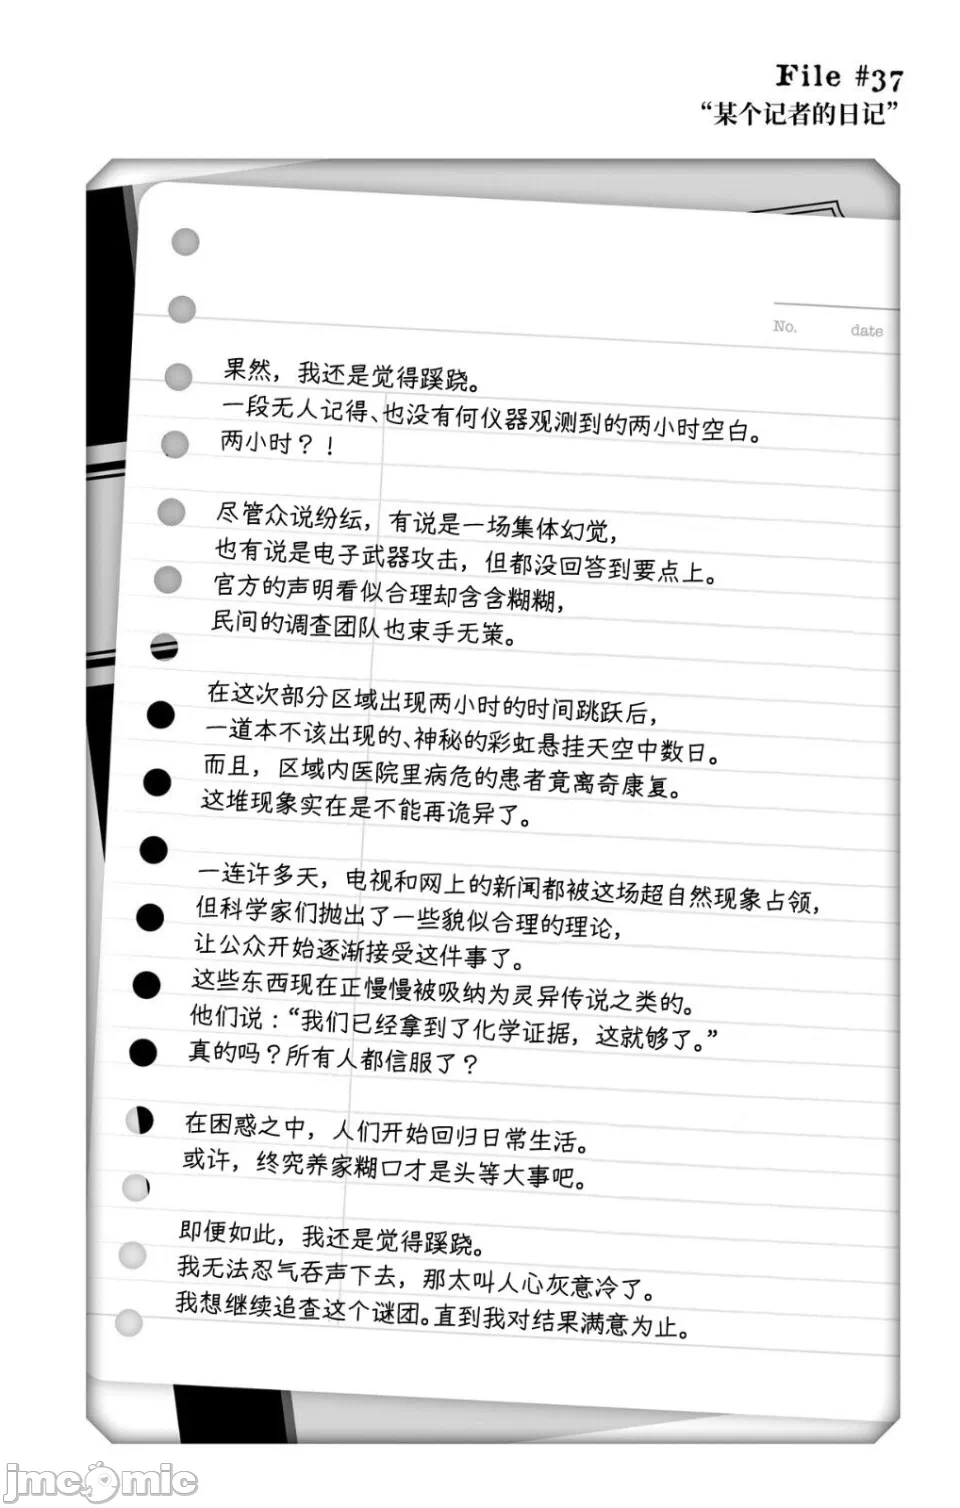 File #37
“某个记者的日记”
No. date
果然，我还是觉得蹊跷。
一段无人记得、也没有何仪器观测到的两小时空白。
两小时？！
尽管众说纷纭，有说是一场集体幻觉，
也有说是电子武器攻击，但都没回答到要点上。
官方的声明看似合理却含含糊糊，
民间的调查团队也束手无策。
在这次部分区域出现两小时的时间跳跃后，
一道本不该出现的、神秘的彩虹悬挂天空中数日。
而且，区域内医院里病危的患者竟离奇康复。
这堆现象实在是不能再诡异了。
一连许多天，电视和网上的新闻都被这场超自然现象占领，
但科学家们抛出了一些貌似合理的理论，
让公众开始逐渐接受这件事了。
这些东西现在正慢慢被吸纳为灵异传说之类的。
他们说：“我们已经拿到了化学证据，这就够了。”
真的吗？所有人都信服了？
在困惑之中，人们开始回归日常生活。
或许，终究养家糊口才是头等大事吧。
即便如此，我还是觉得蹊跷。
我无法忍气吞声下去，那太叫人心灰意冷了。
我想继续追查这个谜团。直到我对结果满意为止。
jmcomic